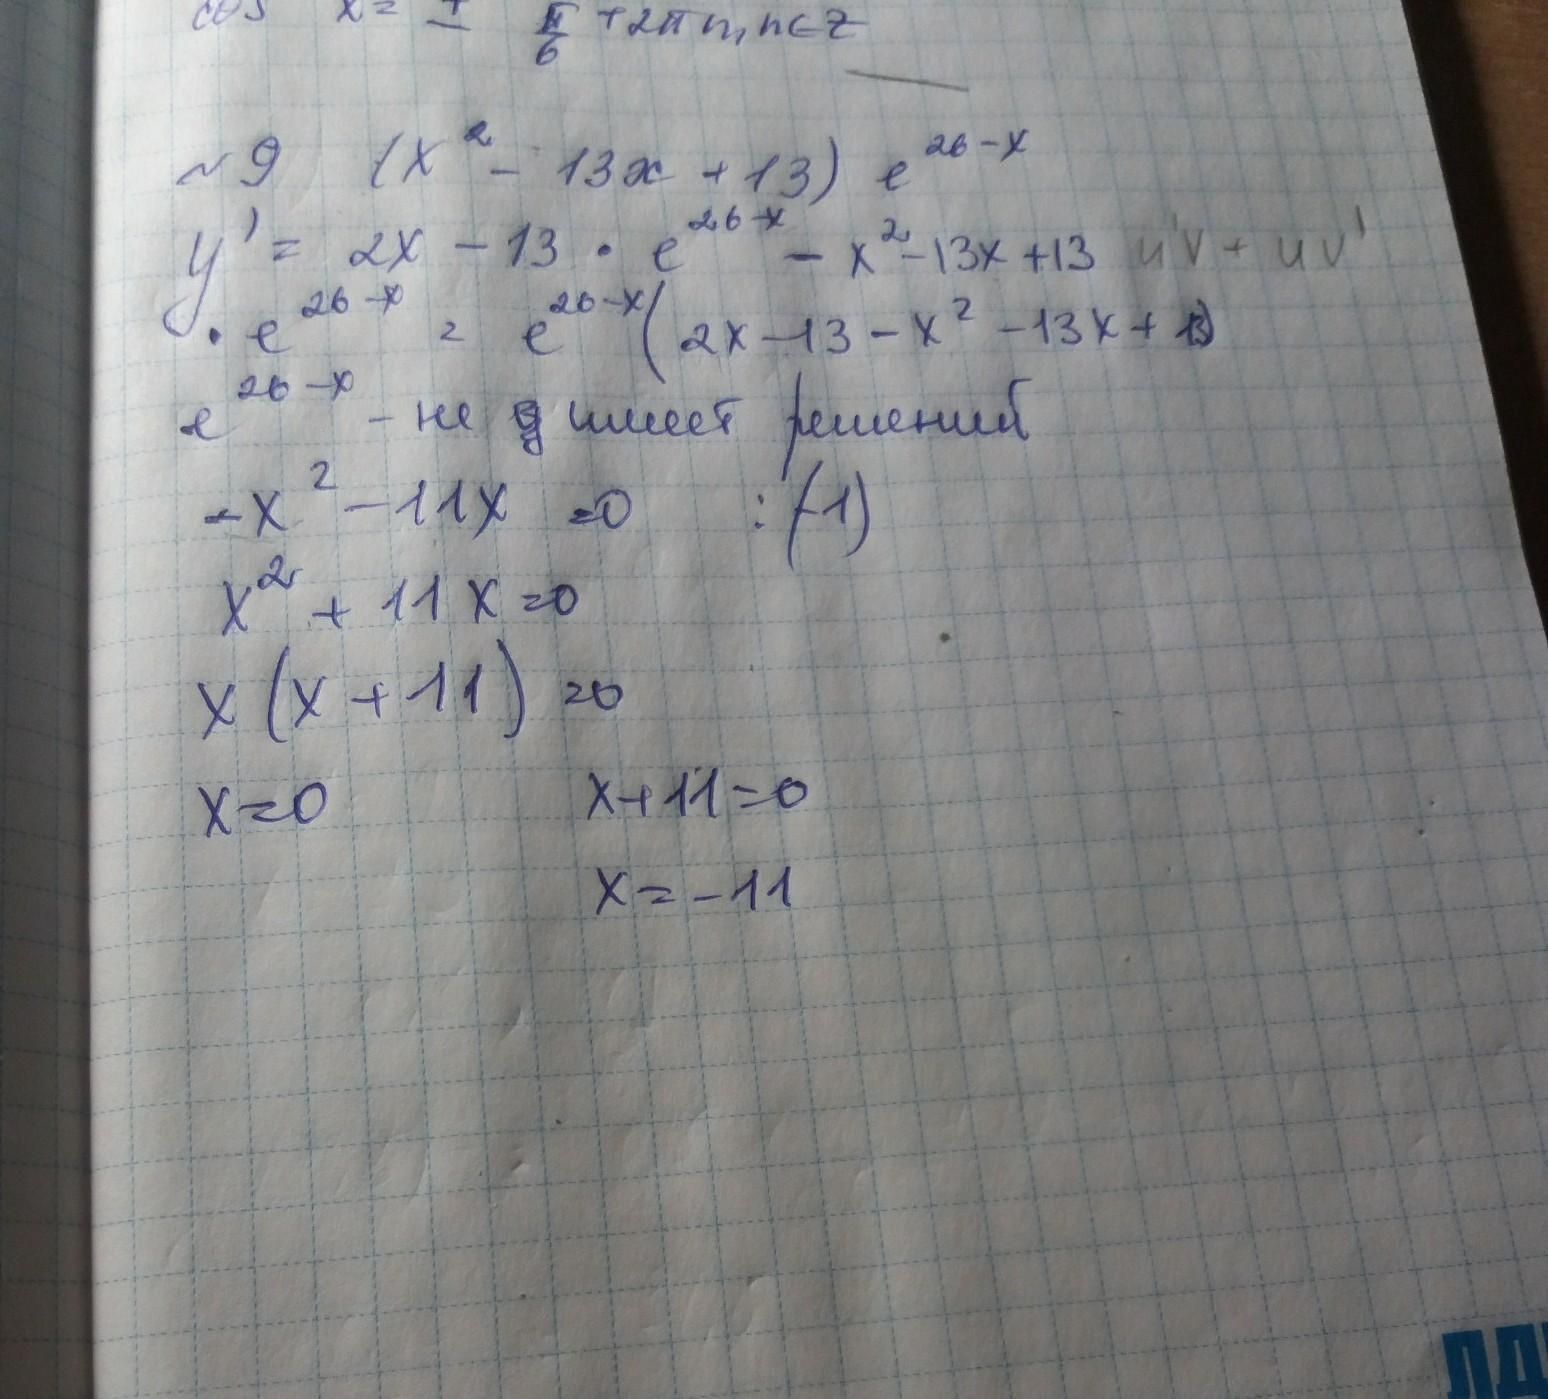 cos x = ± π/6 + 2πn, n∈Z
~9 (x² - 13x + 13) e^{26-x}
y' = 2x - 13 · e^{26-x} - x² - 13x + 13 u'v + uv'
· e^{26-x} = e^{26-x} (2x - 13 - x² - 13x + 13)
e^{26-x} - не имеет решений
-x² - 11x = 0 : (-1)
x² + 11x = 0
x (x + 11) = 0
x = 0 x + 11 = 0
x = -11